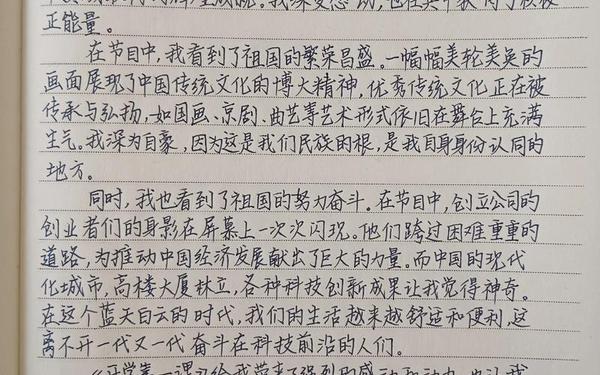 我深受感动,也在其中获得了积极
正能量。
在节目中,我看到了祖国的繁荣昌盛。一幅幅美轮美奂的
画面展现了中国传统文化的博大精神,优秀传统文化正在被
传承与弘扬,如国画、京剧、曲艺等艺术形式依旧在舞台上充满
生气。我深为自豪,因为这是我们民族的根,是我自身身份认同的
地方。
同时,我也看到了祖国的努力奋斗。在节目中,创立公司的
创业者们的身影在屏幕上一次次闪现。他们跨过困难重重的
道路,为推动中国经济发展献出了巨大的力量。而中国的现代
化城市,高楼大厦林立,各种科技创新成果让我觉得神奇。
在这个蓝天白云的时代,我们的生活越来越舒适和便利,这
离不开一代又一代奋斗在科技前沿的人们。
《开学第一课》给我带来了强烈的感动和动力,也让我